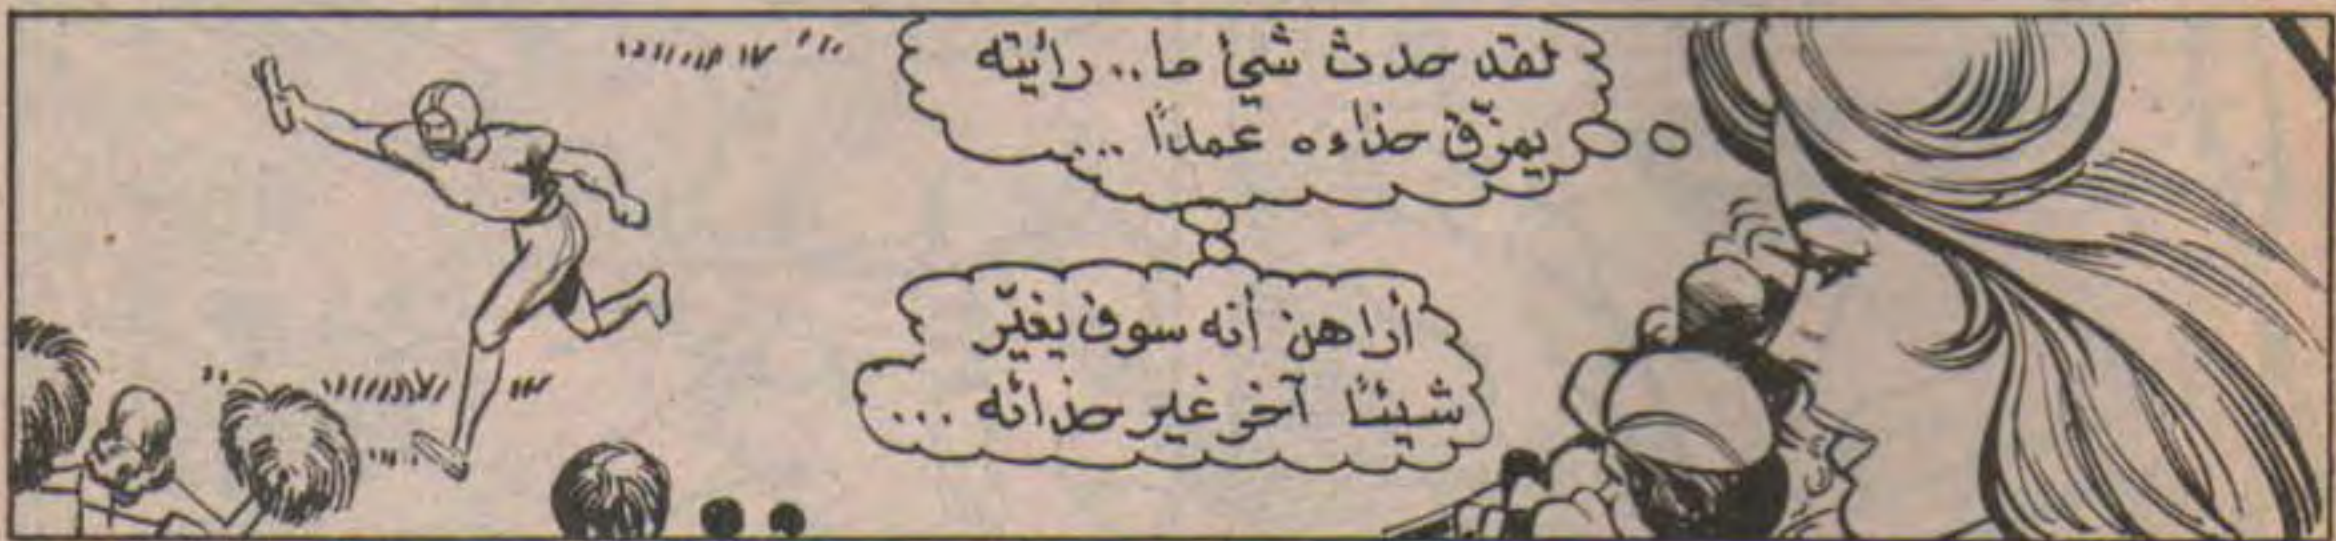 لقد حدث شيئ ما.. رأيته
يمزّق حذاءه عمدًا ...
أراهن أنه سوف يغيّر
شيئًا آخر غير حذائه ...